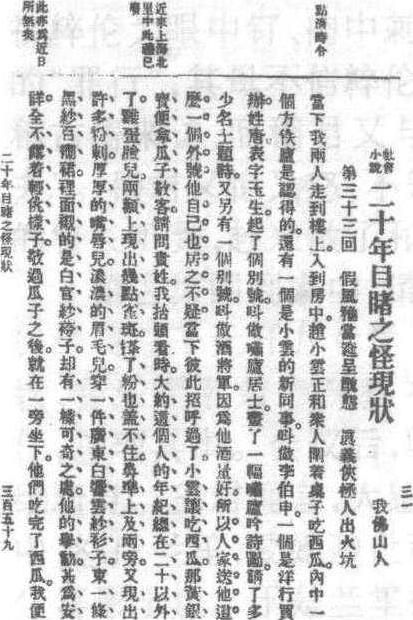 三一
社會小說 二十年目睹之怪現狀
我佛山人
第三十三回 假風雅當筵呈醜態 真義俠拯人出火坑
點清時令
當下我兩人走到樓上。入到房中。趙小雲正和衆人圍着桌子吃西瓜。內中一
個方佚廬是認得的。還有一個是小雲的新同事。叫做李伯申。一個是洋行買
辦。姓唐。表字玉生。起了個別號。叫做嘯廬居士。畫了一幅嘯廬吟詩圖。請了多
少名士題詩。又另有一個別號。叫做酒將軍。因爲他酒量好。所以人家送他這
麽一個外號。他自己也居之不疑。當下彼此招呼過了。小雲讓吃西瓜。那黃銀
近來上海北
里中此禮已
廢
寶便拿瓜子敬客。請問貴姓。我抬頭看時。大約這個人的年紀總在二十以外
了。雞蛋臉兒。兩顴上現出幾點雀斑。搽了粉也蓋不住。鼻準上及兩旁。又現出
許多粉刺。厚厚的嘴唇兒。濃濃的眉毛兒。穿一件廣東白香雲紗衫子。束一條
黑紗百襉裙。裡面襯的是白官紗褲子。却有一樣可奇之處。他的舉動甚爲安
此亦爲近日
所無矣
詳。全不露着輕佻樣子。敬過瓜子之後。就在一旁坐下。他們吃完了西瓜。我便
二十年目睹之怪現狀
三百五十九